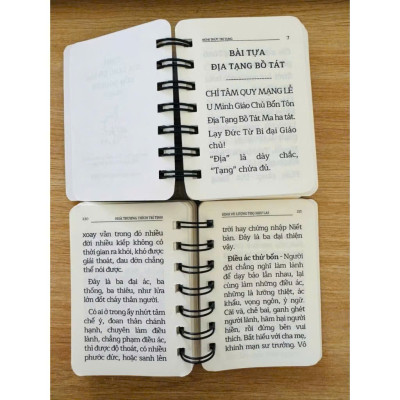 7
BÀI TỰA
ĐỊA TẠNG BỒ TÁT
CHÍ TÂM QUY MẠNG LỄ
U Minh Giáo Chủ Bổn Tôn
Địa Tạng Bồ Tát Ma ha tát.
Lạy Đức Từ Bi đại Giáo
chủ!
"Địa" là dày chắc,
"Tạng" chứa đủ.
xoay vần trong đó nhiều
đời nhiều kiếp không có
thời gian ra khỏi, khó được
giải thoát, đau đớn chẳng
thể nói được.
Đây là ba đại ác, ba
thống, ba thiêu, như lửa
lớn đốt cháy thân người.
Có ai ở trong ấy nhứt tâm
chế ý, đoan thân chánh
hạnh, chuyên làm điều
lành, chẳng phạm điều ác,
thì được độ thoát, có nhiều
phước đức, hoặc sanh lên
trời hay chứng nhập Niết
bàn. Đây là ba đại thiện
vậy.
Điều ác thứ bốn - Người
đời chẳng nghĩ làm lành
để dạy bảo lẫn nhau, lại
cùng làm những điều ác,
những là lưỡng thiệt, ác
khẩu, vọng ngôn, ý ngữ.
Cãi vã, chê bai, ganh ghét
người lành, hãm hại người
hiền, rồi đứng bên vui
thích. Bất hiếu với cha mẹ,
khinh mạn sư trưởng. Vô